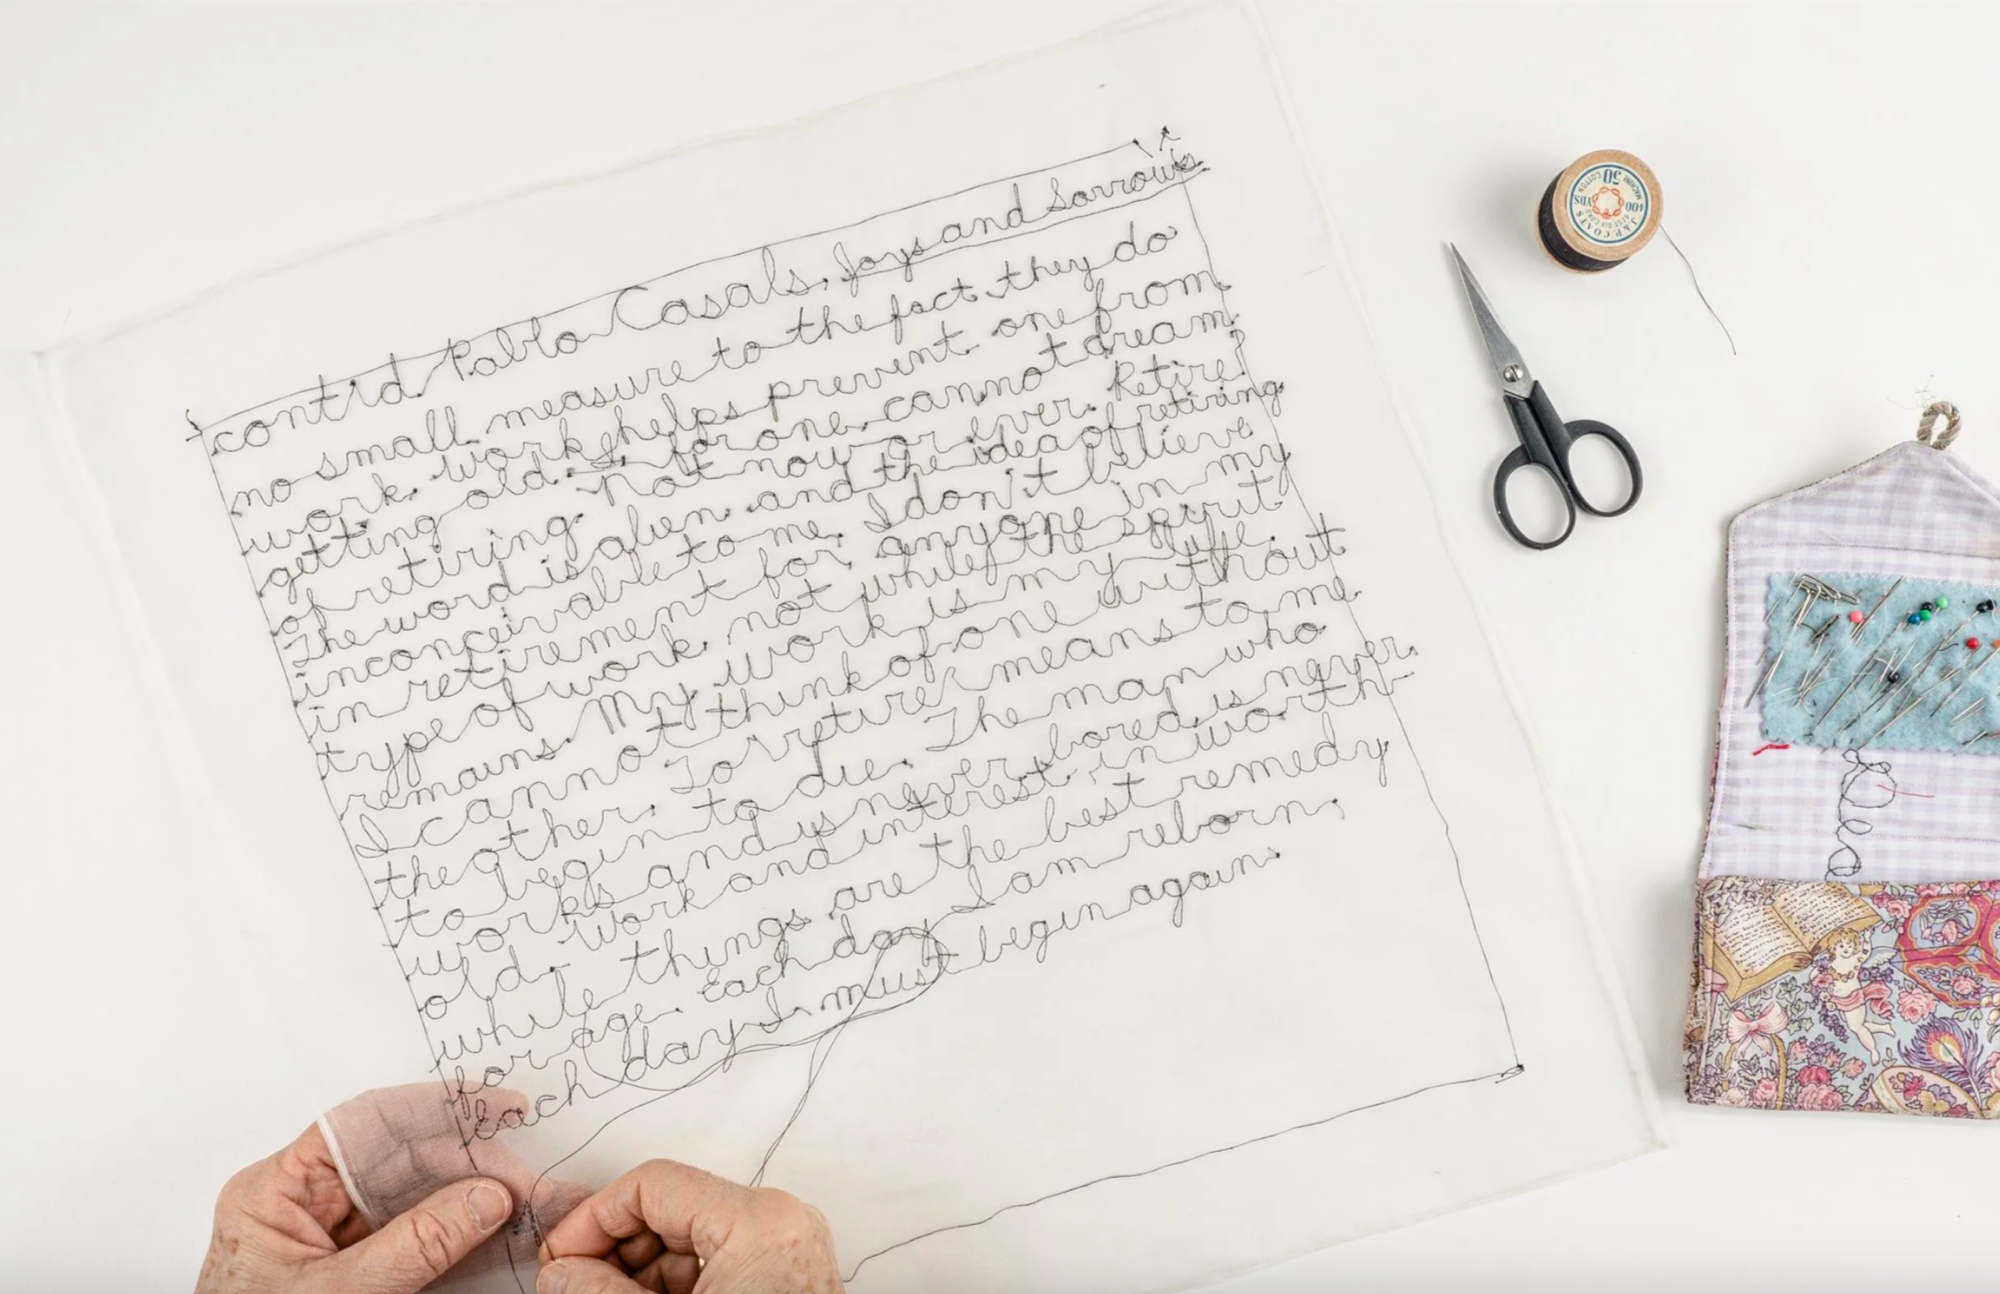 cont'd. Pablo Casals, Joys and Sorrows
no small measure to the fact they do
work. work helps prevent one from
getting old. I, for one, cannot dream
of retiring. Not now or ever. Retire?
The word is alien and the idea of retiring
inconceivable to me. I don't believe
in retirement for anyone in my
type of work, not while the spirit
remains. My work is my life.
I cannot think of one without
the other. To "retire" means to me
to begin to die. The man who
works and is never bored is never
old. Work and interest in worth-
while things are the best remedy
for age. Each day I am reborn.
Each day I must begin again.
J. & P. COATS
BEST SIX CORD
400 YDS
MACHINE 50 COTTON